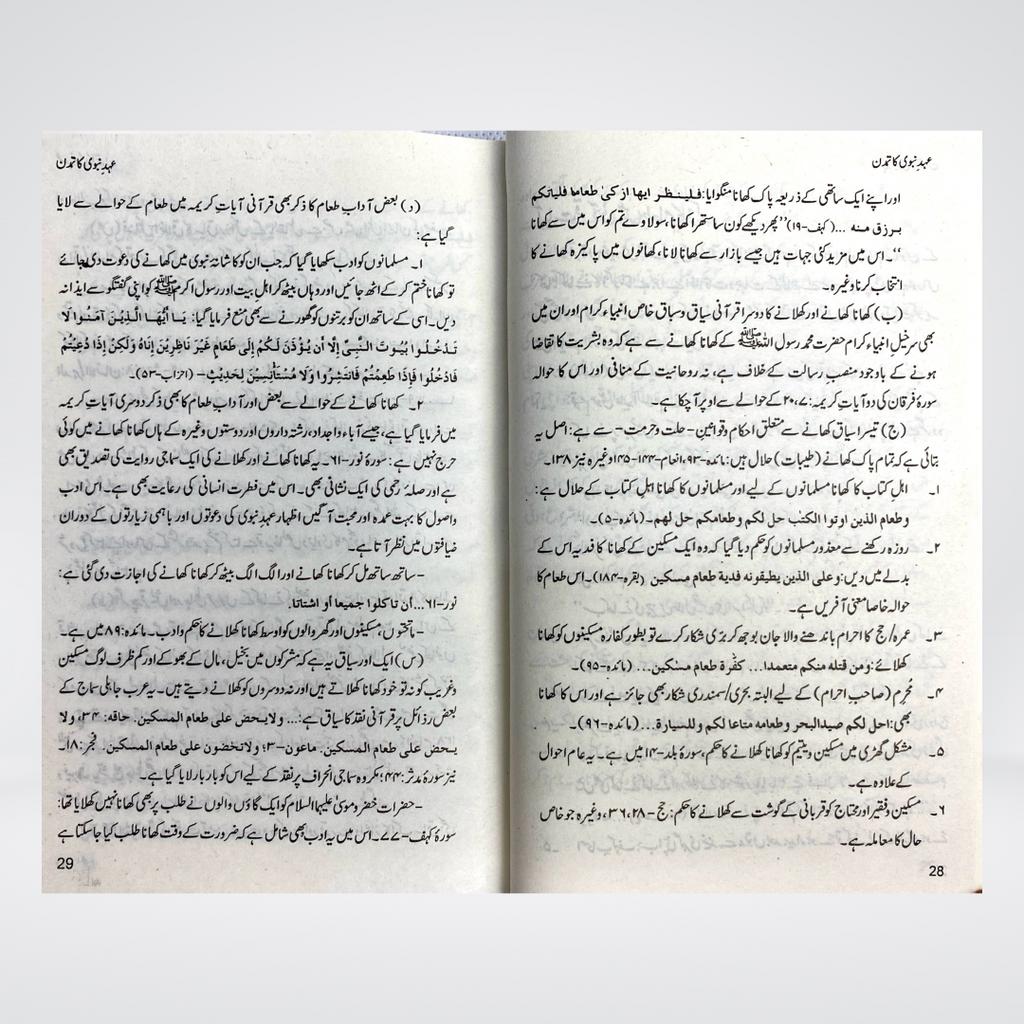 عہدِ نبوی کا تمدن
اور اپنے ایک ساتھی کے ذریعہ پاک کھانا منگوایا: فلینظر ایھا ازکیٰ طعاما فلیاتکم
برزق منہ ...(کہف-۱۹)’’پھر دیکھے کون سا ستھرا کھانا، سولاوے تم کو اس میں سے کھانا
‘‘۔ اس میں مزید کئی جہات ہیں جیسے بازار سے کھانا لانا، کھانوں میں پاکیزہ کھانے کا
انتخاب کرنا وغیرہ۔
(ب) کھانا کھانے اور کھلانے کا دوسرا قرآنی سیاق وسباق خاص انبیاء کرام اور ان میں
بھی سرخیلِ انبیاء کرام حضرت محمد رسول اللہ ﷺ کے کھانا کھانے سے ہے کہ وہ بشریت کا تقاضا
ہونے کے باوجود منصبِ رسالت کے خلاف ہے، نہ روحانیت کے منافی اور اس کا حوالہ
سورۂ فرقان کی دو آیاتِ کریمہ: ۷، ۲۰ کے حوالے سے اوپر آ چکا ہے۔
(ج) تیسرا سیاق کھانے سے متعلق احکام وقوانین- حلت وحرمت- سے ہے: اصل یہ
بتائی ہے کہ تمام پاک کھانے (طیبات) حلال ہیں: مائدہ-۹۳، انعام-۱۴۴-۱۴۵ وغیرہ نیز ۱۳۸۔
۱۔ اہلِ کتاب کا کھانا مسلمانوں کے لیے اور مسلمانوں کا کھانا اہلِ کتاب کے حلال ہے:
وطعام الذین اوتوا الکتٰب حل لکم وطعامکم حل لھم۔ (مائدہ-۵)۔
۲۔ روزہ رکھنے سے معذور مسلمانوں کو حکم دیا گیا کہ وہ ایک مسکین کے کھانا کا فدیہ اس کے
بدلے میں دیں: وعلی الذین یطیقونہ فدیۃ طعام مسکین (بقرہ-۱۸۴)۔ اس طعام کا
حوالہ خاصا معنی آفریں ہے۔
۳۔ عمرہ/حج کا احرام باندھنے والا جان بوجھ کر بَرّی شکار کرے تو بطور کفارہ مسکینوں کو کھانا
کھلائے: ومن قتلہ منکم متعمدا... کفّرۃ طعام مسٰکین... (مائدہ-۹۵)۔
۴۔ مُحْرِم (صاحبِ احرام) کے لیے البتہ بحری/سمندری شکار بھی جائز ہے اور اس کا کھانا
بھی: احل لکم صید البحر وطعامہ متاعا لکم وللسیارۃ... (مائدہ-۹۶)۔
۵۔ مشکل گھڑی میں مسکین ویتیم کو کھانا کھلانے کا حکم، سورۂ بلد-۱۴ میں ہے۔ یہ عام احوال
کے علاوہ ہے۔
۶۔ مسکین وفقیر اور محتاج کو قربانی کے گوشت سے کھلانے کا حکم: حج-۲۸، ۳۶، وغیرہ جو خاص
حال کا معاملہ ہے۔
28
عہدِ نبوی کا تمدن
(د) بعض آدابِ طعام کا ذکر بھی قرآنی آیاتِ کریمہ میں طعام کے حوالے سے لایا
گیا ہے:
۱۔ مسلمانوں کو ادب سکھایا گیا کہ جب ان کو کاشانۂ نبوی میں کھانے کی دعوت دی جائے
تو کھانا ختم کر کے اٹھ جائیں اور وہاں بیٹھ کر اہلِ بیت اور رسول اکرم ﷺ کو اپنی گفتگو سے ایذا نہ
دیں۔ اسی کے ساتھ ان کو برتنوں کو گھورنے سے بھی منع فرمایا گیا: یَا أَیُّهَا الَّذِینَ آمَنُوا لَا
تَدْخُلُوا بُیُوتَ النَّبِیِّ إِلَّا أَن یُؤْذَنَ لَکُمْ إِلَی طَعَامٍ غَیْرَ نَاظِرِینَ إِنَاهُ وَلَکِنْ إِذَا دُعِیتُمْ
فَادْخُلُوا فَإِذَا طَعِمْتُمْ فَانتَشِرُوا وَلَا مُسْتَأْنِسِینَ لِحَدِیثٍ- (احزاب-۵۳)۔
۲۔ کھانا کھانے کے حوالے سے بعض اور آدابِ طعام کا بھی ذکر دوسری آیاتِ کریمہ
میں فرمایا گیا ہے، جیسے آباء واجداد، رشتہ داروں اور دوستوں وغیرہ کے ہاں کھانا کھانے میں کوئی
حرج نہیں ہے: سورۂ نور-۶۱۔ یہ کھانا کھانے اور کھلانے کی ایک سماجی روایت کی تصدیق بھی
ہے اور صلۂ رحمی کی ایک نشانی بھی۔ اس میں فطرت انسانی کی رعایت بھی ہے۔ اس ادب
واصول کا بہت عمدہ اور محبت آگیں اظہار عہدِ نبوی کی دعوتوں اور باہمی زیارتوں کے دوران
ضیافتوں میں نظر آتا ہے۔
-ساتھ ساتھ مل کر کھانا کھانے اور الگ الگ بیٹھ کر کھانا کھانے کی اجازت دی گئی ہے:
نور-۶۱...أن تاکلوا جمیعا أو اشتاتا.
-ماتحتوں، مسکینوں اور گھر والوں کو اوسط کھانا کھلانے کا حکم وادب۔ مائدہ: ۸۹ میں ہے۔
(س) ایک اور سیاق یہ ہے کہ مشرکوں میں بخیل، مال کے بھوکے اور کم ظرف لوگ مسکین
وغریب کو نہ تو خود کھانا کھلاتے ہیں اور نہ دوسروں کو کھلانے دیتے ہیں۔ یہ عرب جاہلی سماج کے
بعض رذائل پر قرآنی نقد کا سیاق ہے:... ولا یحض علی طعام المسکین. حاقہ: ۳۴، ولا
یحض علی طعام المسکین. ماعون-۳؛ ولا تحٰضون علی طعام المسکین. فجر: ۱۸۔
نیز سورۂ مدثر: ۴۴؛ مکروہ سماجی انحراف پر نقد کے لیے اس کو بار بار لایا گیا ہے۔
-حضرات خضر وموسیٰ علیہما السلام کو ایک گاؤں والوں نے طلب پر بھی کھانا نہیں کھلایا تھا:
سورۂ کہف-۷۷۔ اس میں یہ ادب بھی شامل ہے کہ ضرورت کے وقت کھانا طلب کیا جا سکتا ہے
29